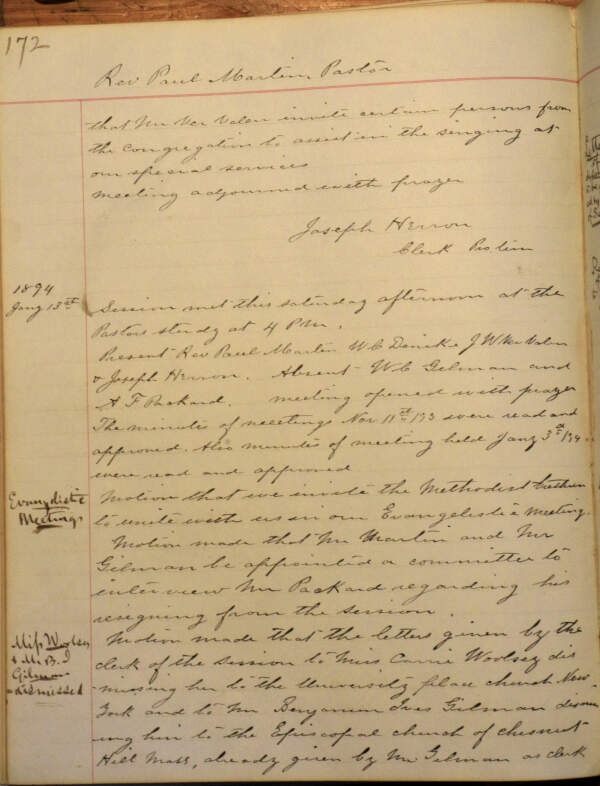 172
Rev Paul Martin, Pastor
that Mr Van Valen invite certain persons from
the congregation to assist in the singing at
our special services
meeting adjourned with prayer
Joseph Herron
Clerk Protim
1894
Jany 13th
Session met this saturday afternoon at the
Pastors study at 4 P.M.
Present Rev Paul Martin W C Denike J W Van Valen
& Joseph Herron. Absent W C Gilman and
A F Packard. meeting opened with prayer
The minutes of meetings Nov 11th were read and
approved. Also minutes of meeting held Jany 3d
were read and approved
Evangelistic
Meetings
Motion that we invite the Methodist brethren
to unite with us in our Evangelestic meeting.
Motion made that Mr Martin and Mr
Gilman be appointed a committee to
interview Mr Packard regarding his
resigning from the session.
Miss Woolsey
& Mr B. I
Gilman
dismissed
Motion made that the letters given by the
clerk of the session to Miss Carrie Woolsey dis
missing her to the University place church New
York and to Mr Benjamin Ives Gilman dismiss
ing him to the Episcopal church of chesnut
Hill Mass, already given by Mr Gilman as clerk